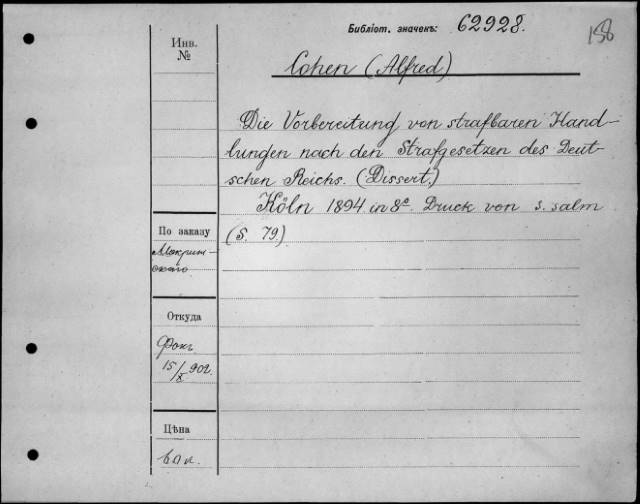 Библіот. значекъ: 62928.
158
Инв.
№
Cohen (Alfred)
Die Vorbereitung von strafbaren Hand-
lungen nach den Strafgesetzen des Deut-
schen Reichs. (Dissert.)
Köln 1894 in 8º. Druck von S. Salm
(S. 79.)
По заказу
Мокрин-
скаго
Откуда
Фокъ
15/X 902.
Цѣна
60 к.